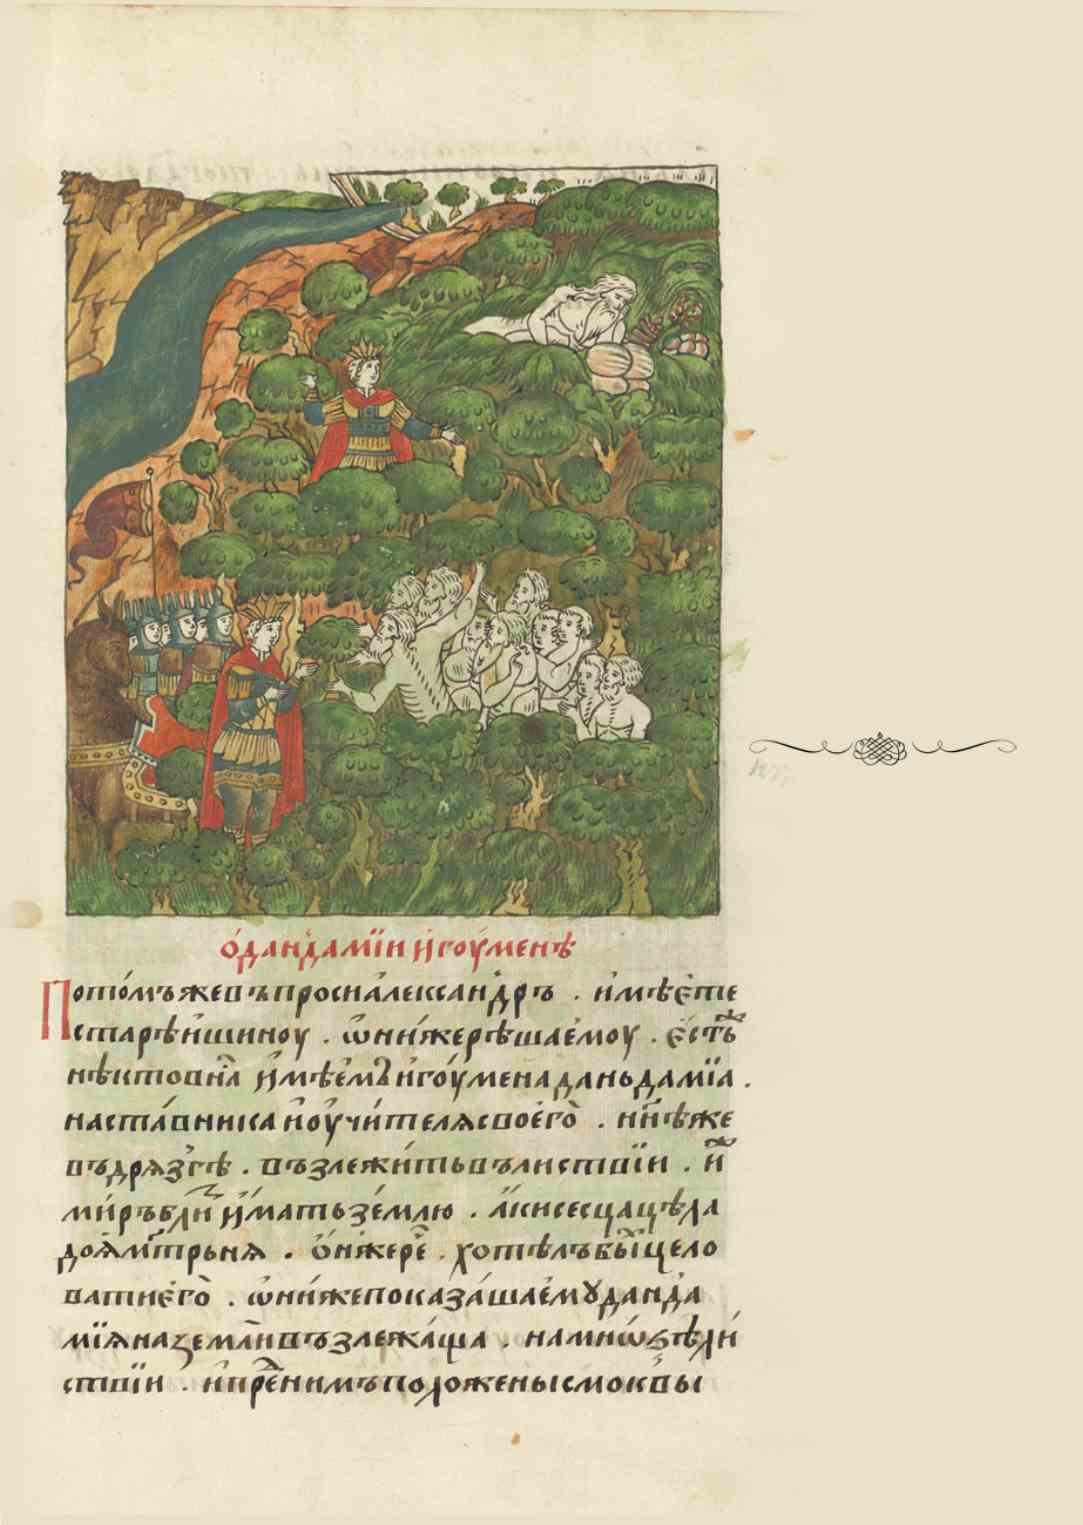 ѻ҆данда́мїи и҆гоу́менѣ
Пото́мъжевъпросиа҆леѯандръ . и҆мѣе҆те
старѣи҆шиноу . ѡ҆ни́жерѣшае҆моу . е҆́сть
нѣктовна́ и҆мѣе҆мъ и҆гоу́менаданьдамїа .
наста́вника и҆оучи́телѧсвоего̀ . ни́нѣже
въдрѧзгѣ . възлежи́тьвълиствїи . и҆
ми́ръбли́ и҆́матьзе́млю . а҆́кисесцацѣла
доꙗ҆мтрьнѧ . ѻ҆ни́жере . хотѣлъбыцело
ватиего̀ . ѡ҆ни́жепоказа́шае҆мꙋданда
мїꙗназемлѝвъзлежа́ща . намноѕѣли́
ствїи . и҆пренимъположенысмоквы